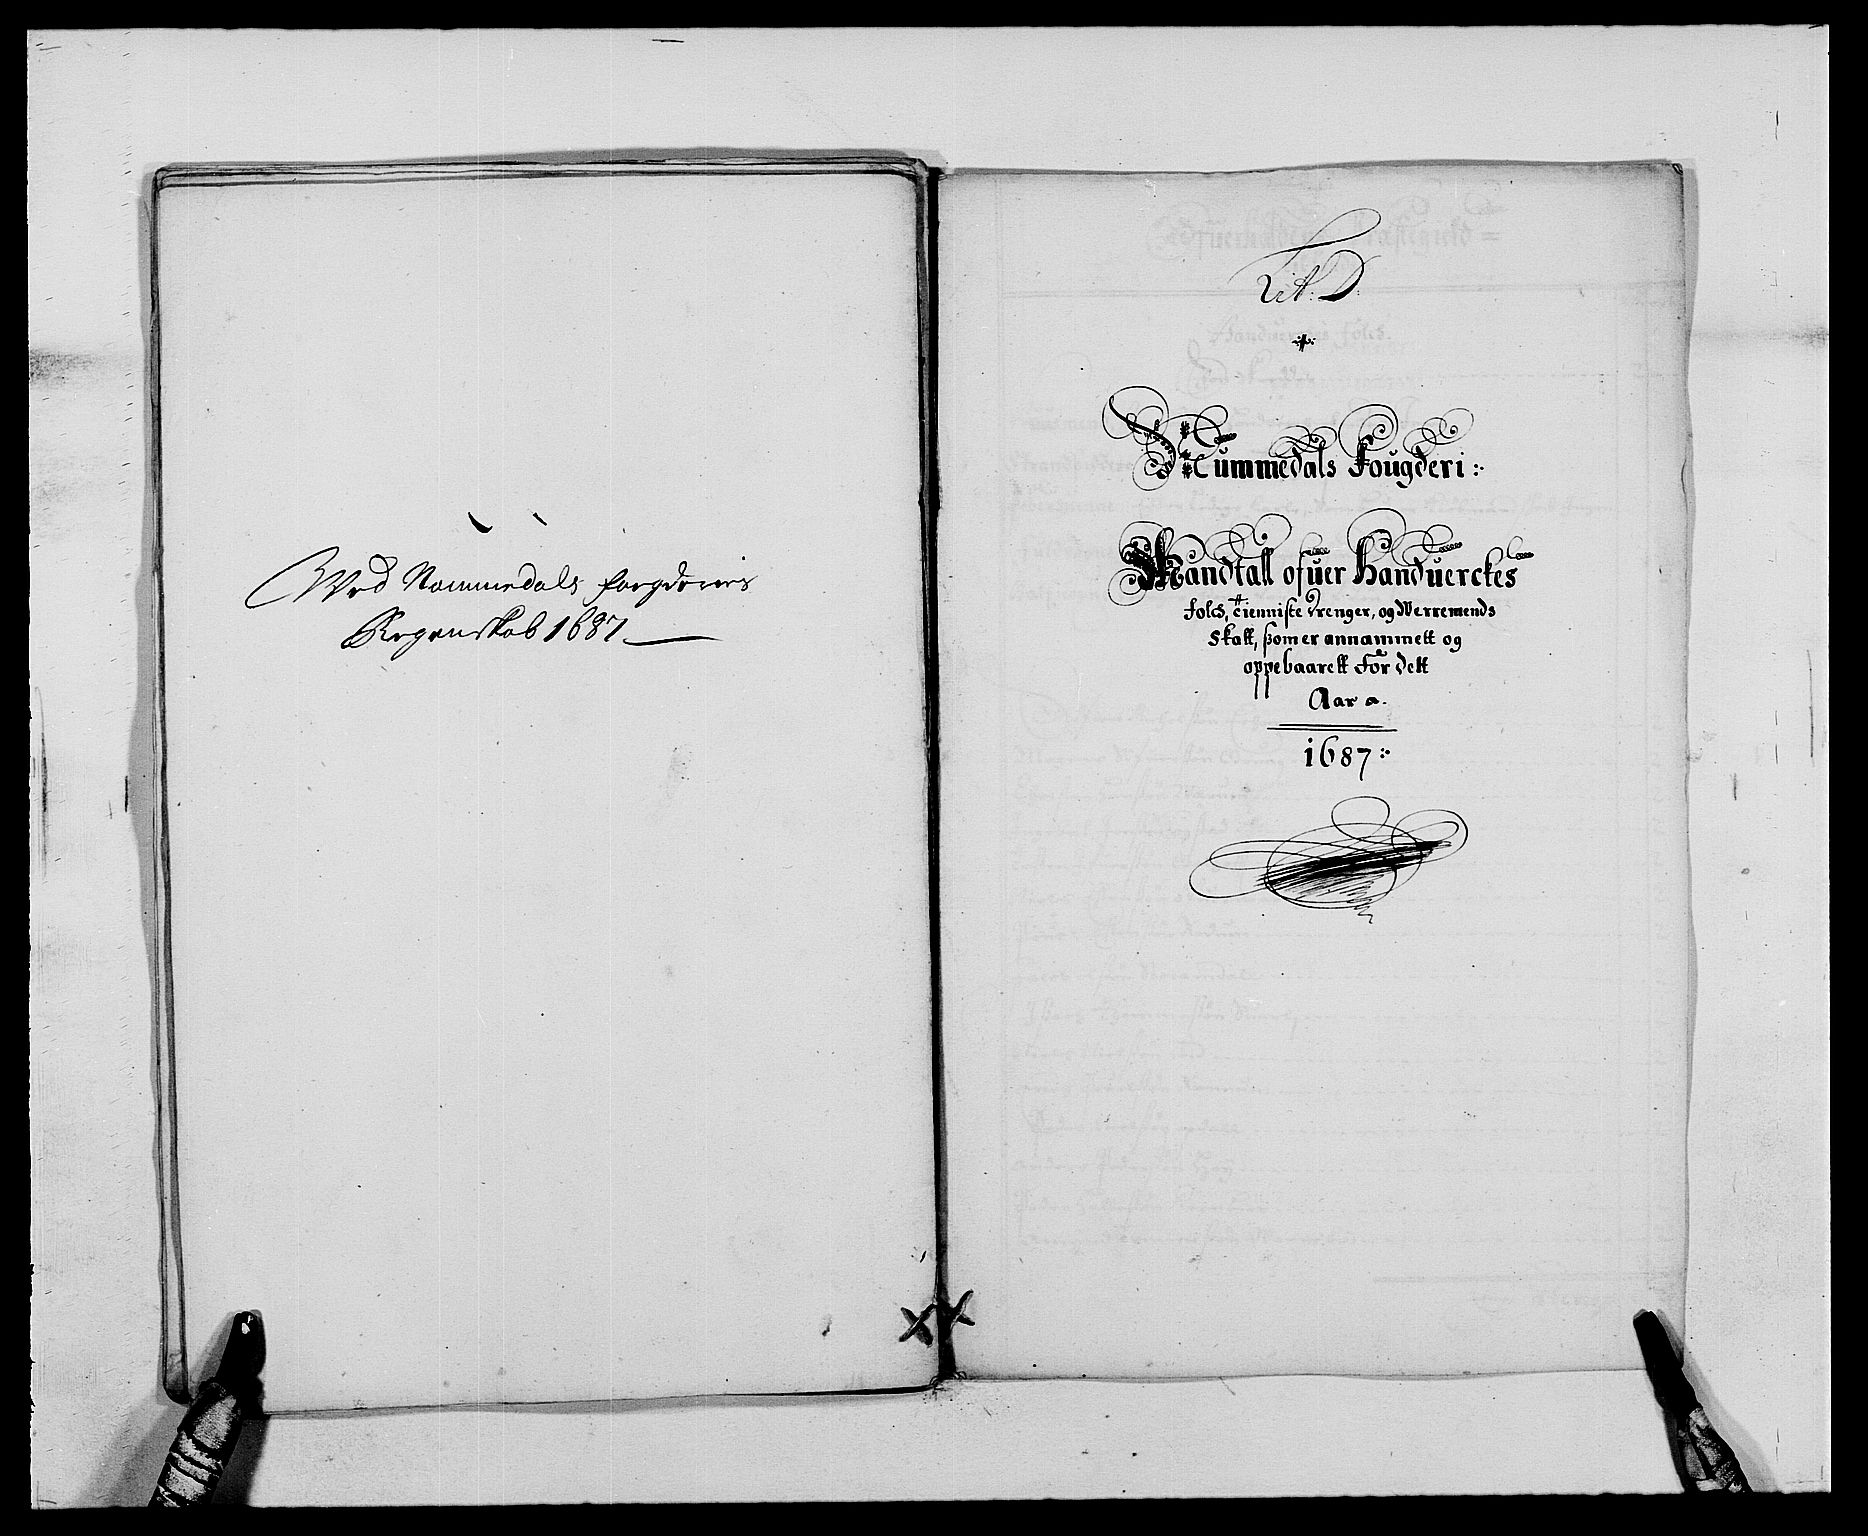 Wed Nommedals fougderies
Regenskab 1687
Lit: D
Nummedals Fougderi:
Mandtall ofuer Handuerckes
folck, tienniste drenger, og Werremends
Skatt, som er annammett og
oppebaarett for dett
Aar a.
1687: